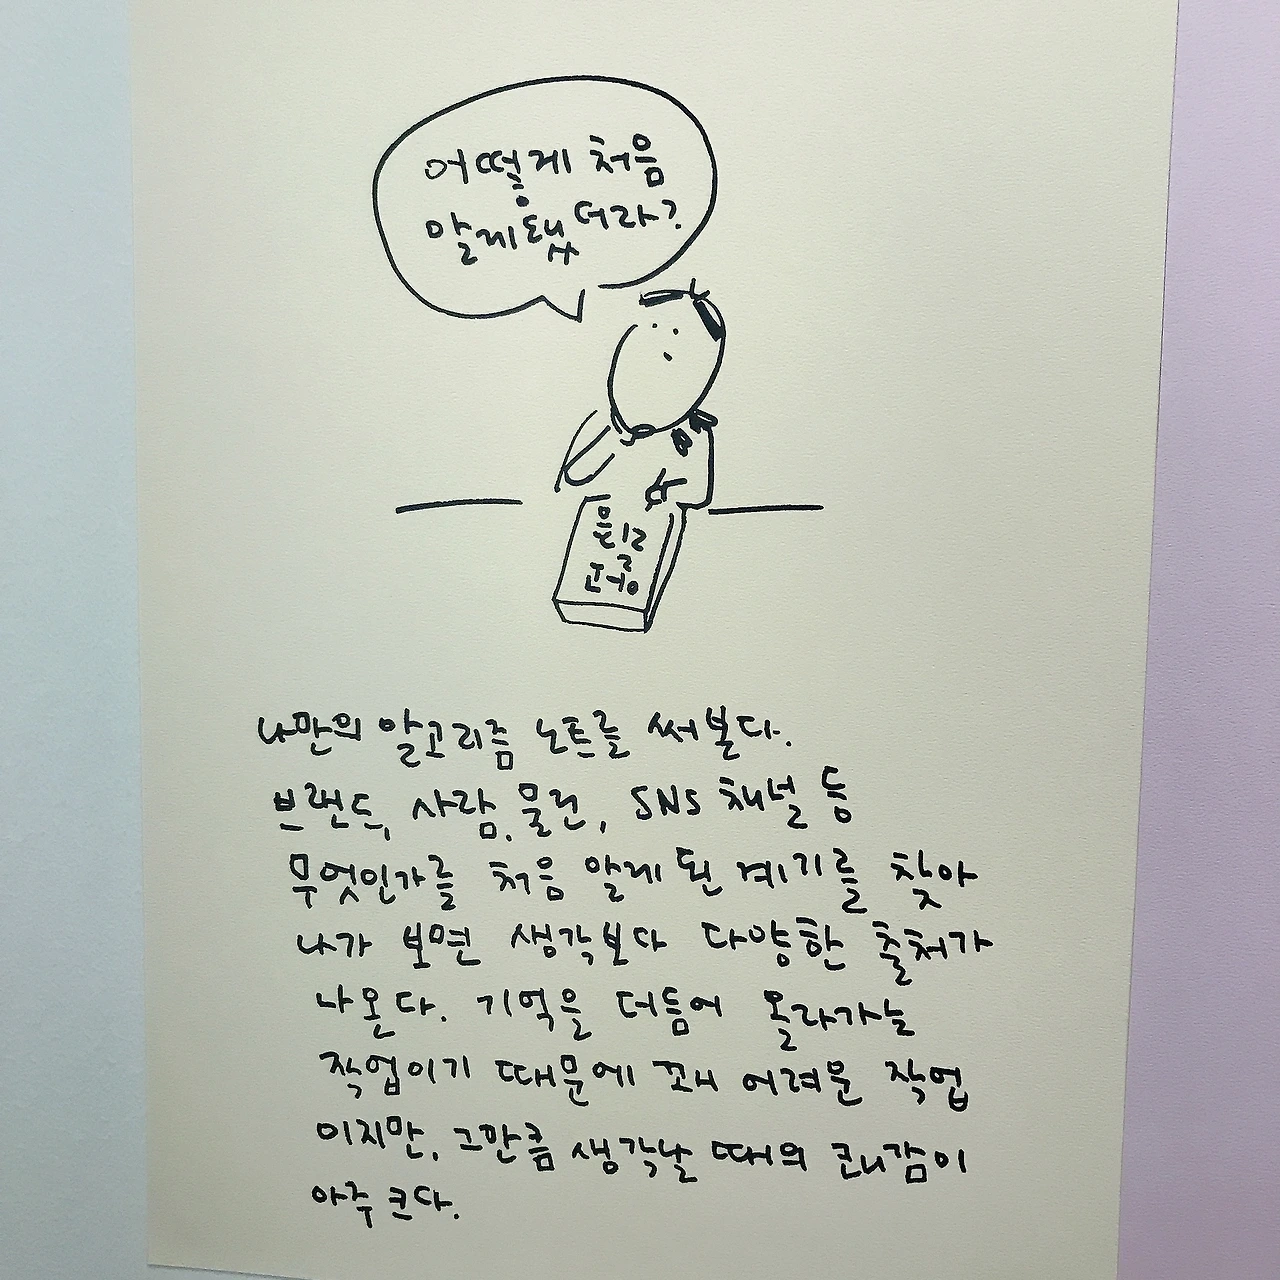 어떻게 처음
알게됐더라?
나만의 알고리즘 노트를 써본다.
브랜드, 사람, 물건, SNS 채널 등
무엇인가를 처음 알게 된 계기를 찾아
나가 보면 생각보다 다양한 출처가
나온다. 기억을 더듬어 올라가는
작업이기 때문에 꽤 어려운 작업
이지만, 그만큼 생각날 때의 쾌감이
아주 크다.